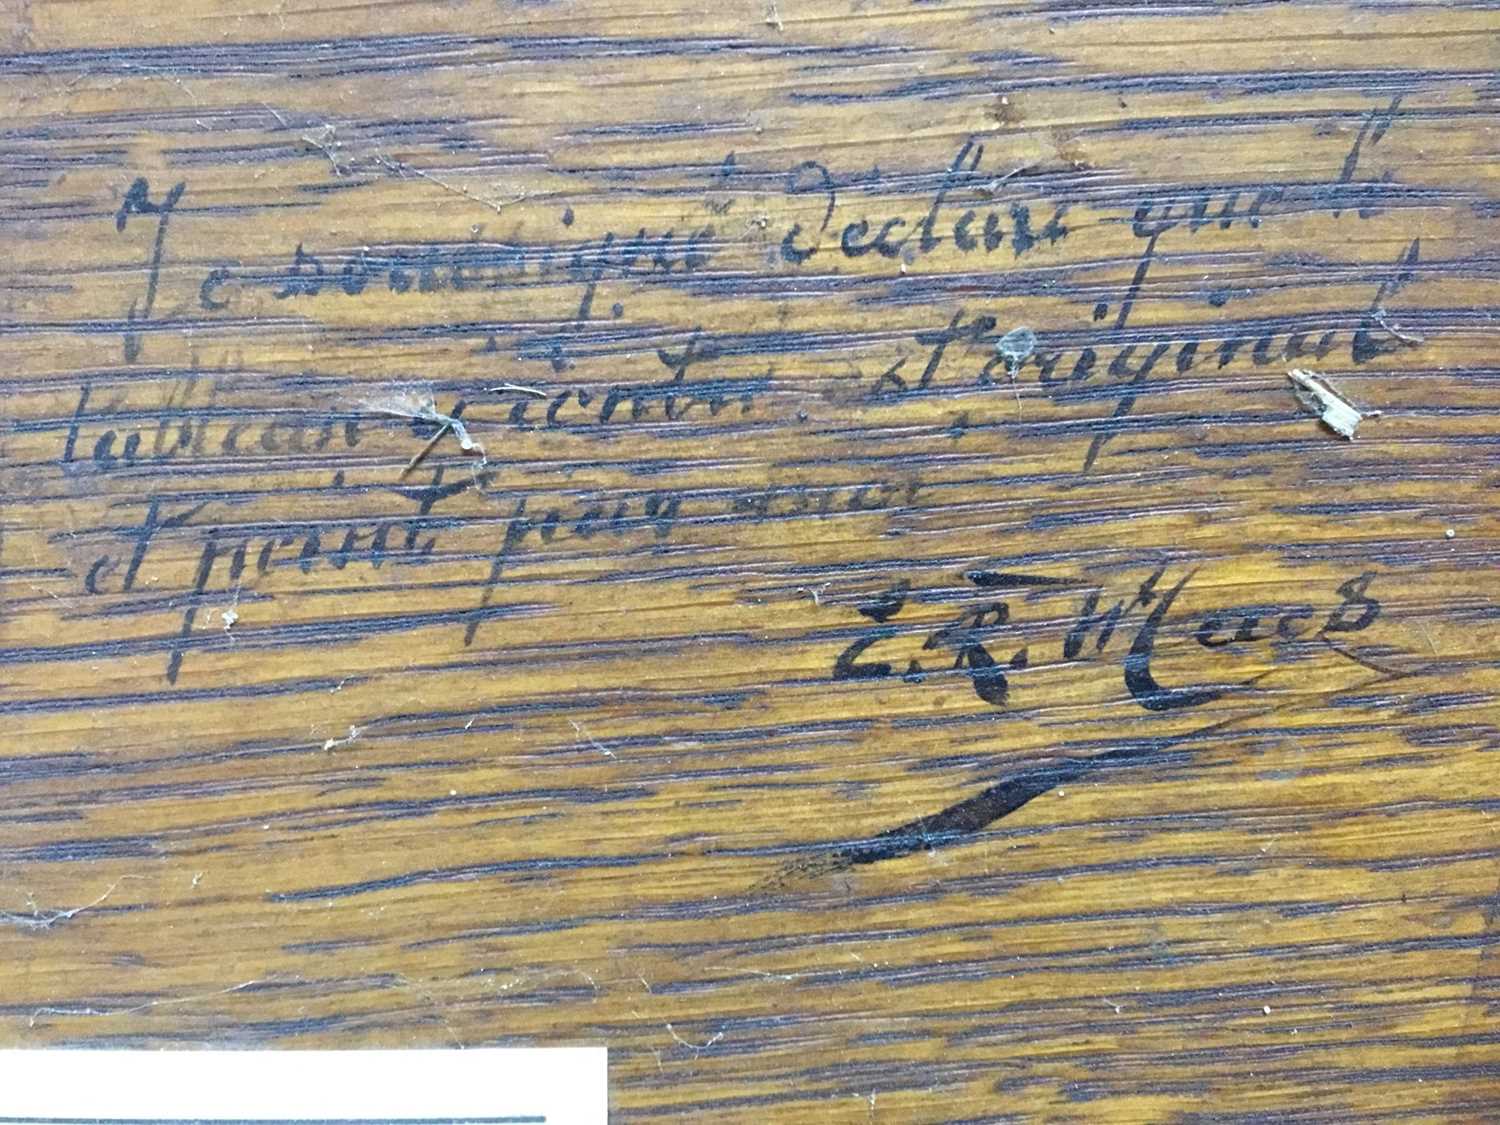 Je soussigné déclare que le
tableau ci contre est l'original
et peint par moi
E. R. Maes